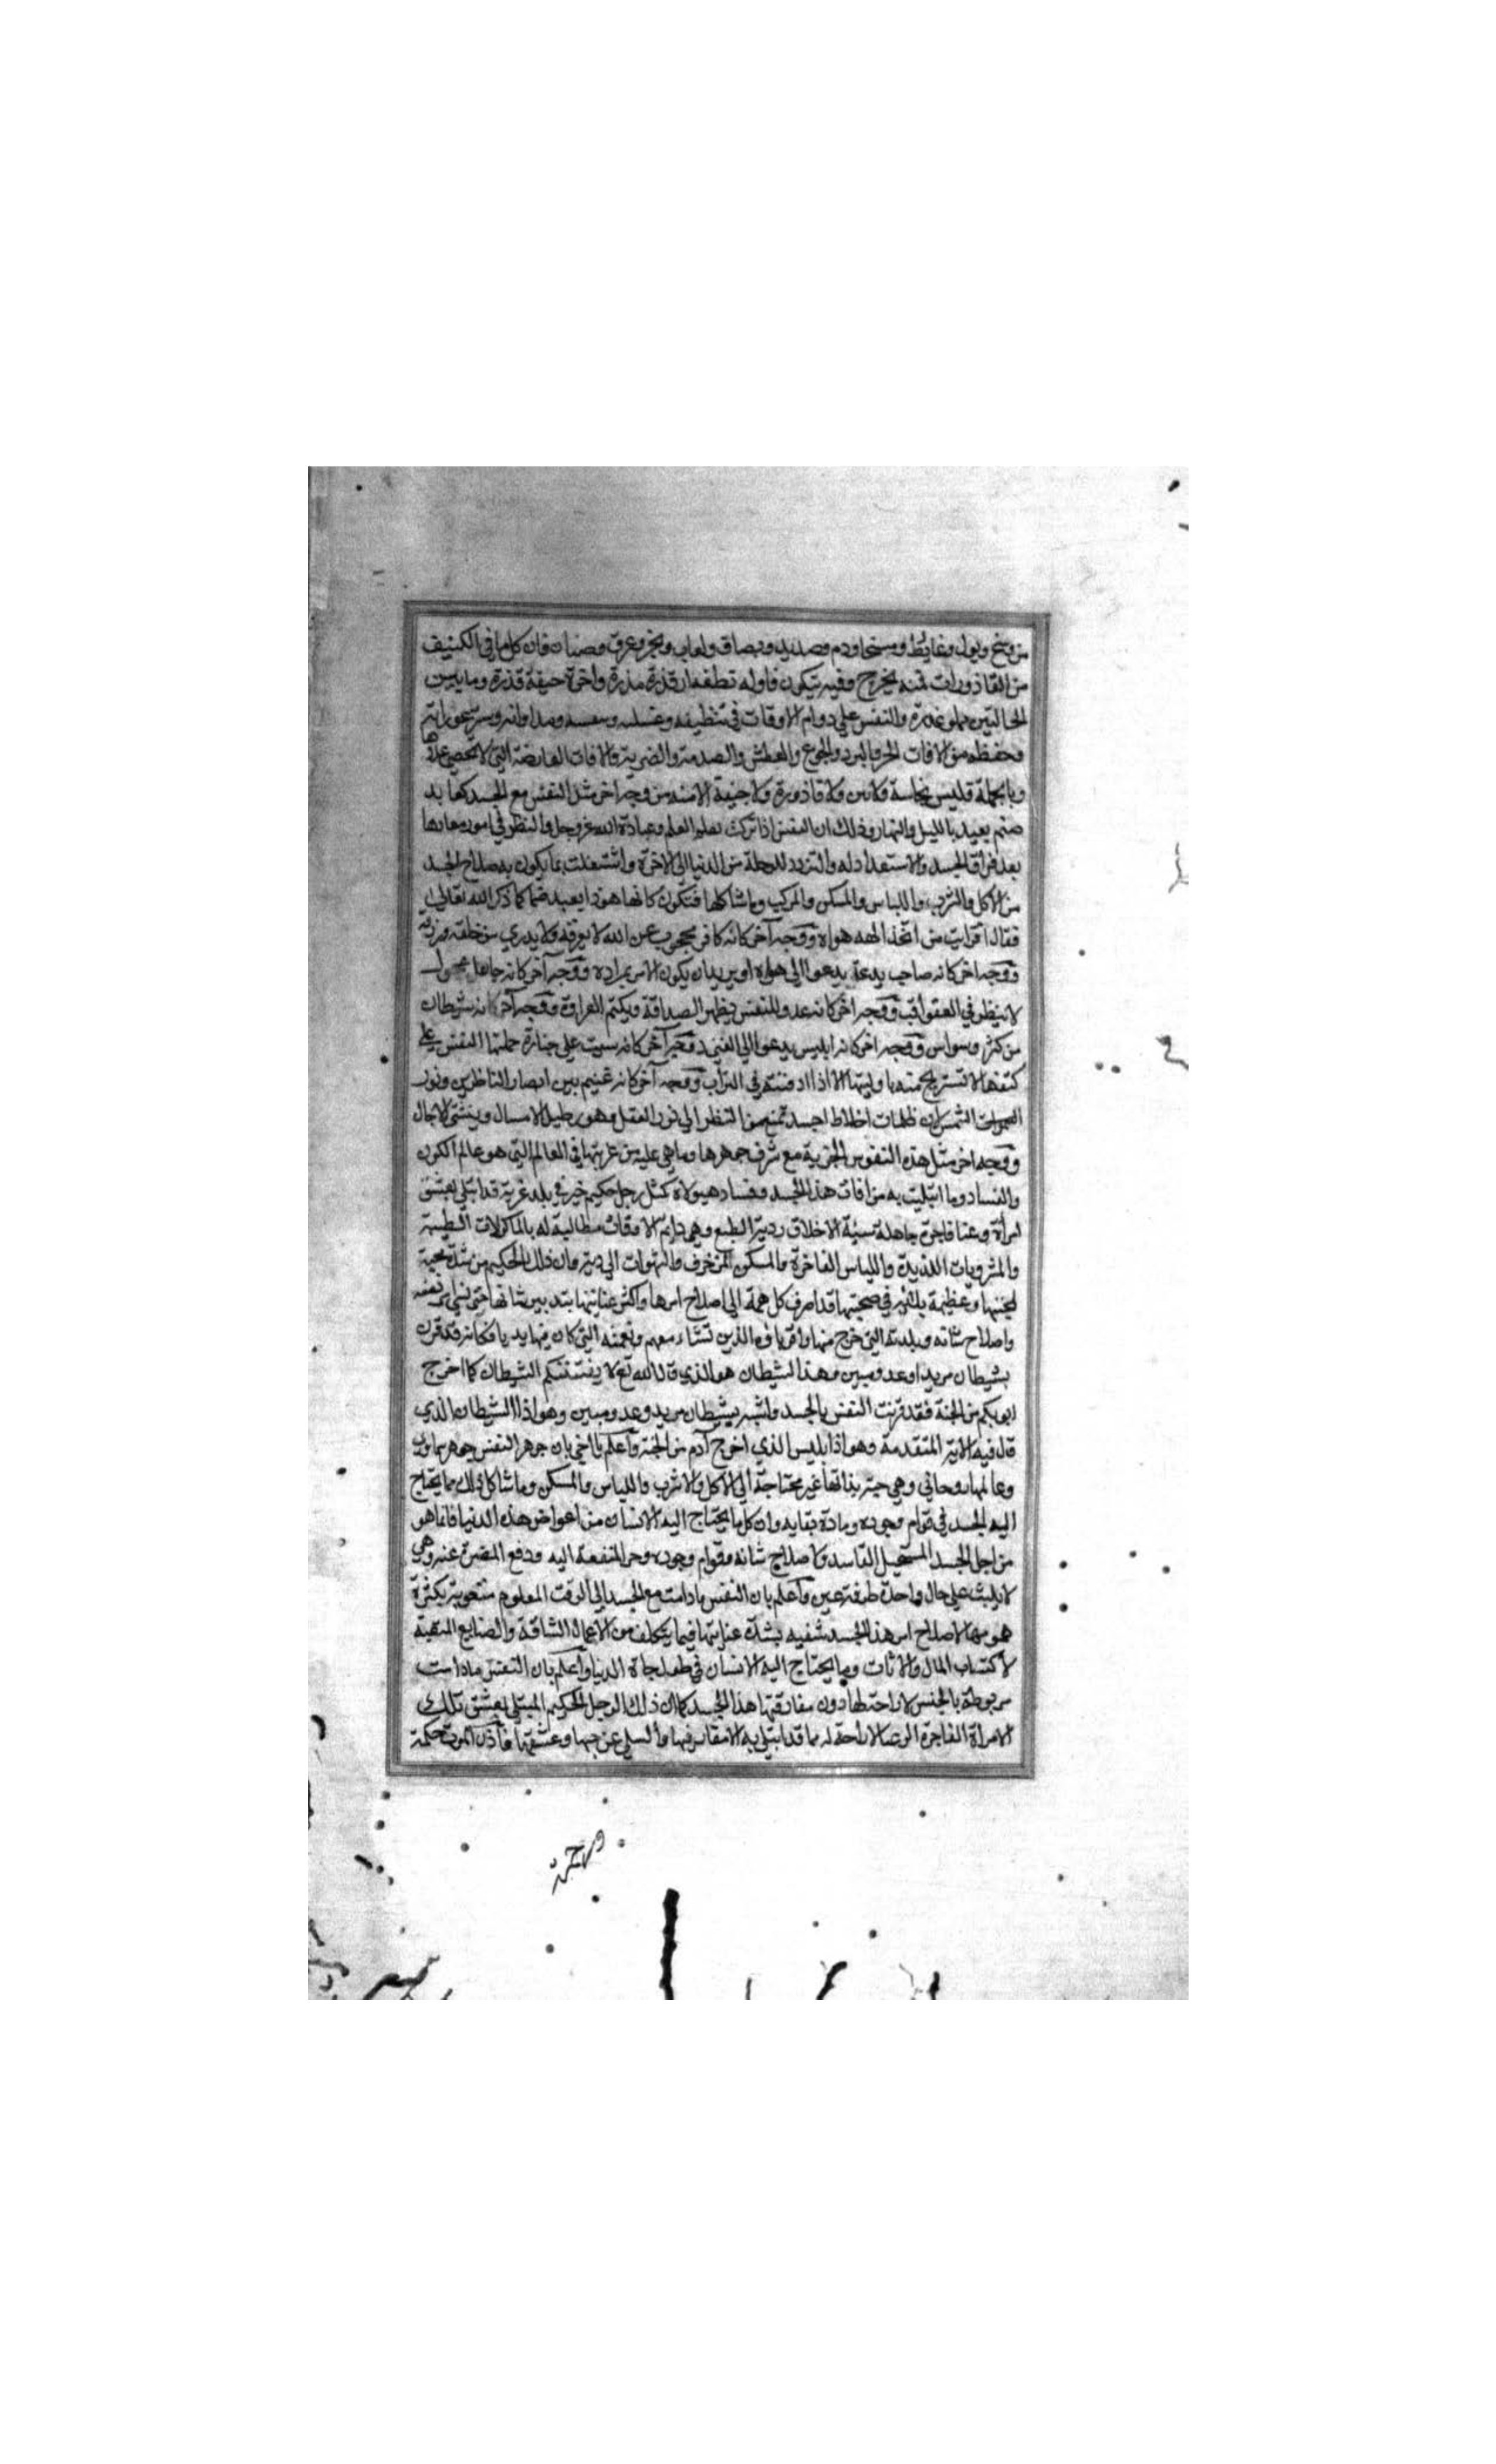 من وسخ وبول وغايط ومخاط ودم وصديد وبصاق ولعاب وبخر وعرق وصنان فان كل ما في الكنيف
من القاذورات فمنه يخرج وفيه يتكون فاوله نطفة قذرة مذرة واخره جيفة قذرة وما بين
الحالتين مملو عذرة والنفس علي دوام الاوقات في تنظيفه وغسله ومداواته وستر عوراته
وحفظه من الافات الحر والبرد والجوع والعطش والصدمة والضربة والافات العارضة التي لا تحصي عددها
وبالجملة فليس نجاسة ولا قاذورة ولا جيفة الا منه ومن وجه اخر مثل النفس مع الجسد كعابد
صنم يعبده بالليل والنهار وذلك ان النفس اذا تركت تعلم العلم وعبادة الله عز وجل والنظر في امور معادها
بعد فراق الجسد والاستعداد له والتزود للرحلة من الدنيا الي الاخرة واشتغلت بما يكون به صلاح الجسد
من الاكل والشرب واللباس والمسكن والمركب وما شاكلها فتكون كانها هوذا يعبد صنما كما ذكر الله تعالي
فقال افرايت من اتخذ الهه هواه ووجه آخر كانه كافر محجوب عن الله لا يعرفه ولا يدري من خلقه ورزقه
ووجه اخر كانه صاحب بدعة يدعوا الي هواه او يريد ان يكون الامر بمراده ووجه آخر كانه جاهل عجول
لا ينظر في العواقب ووجه اخر كانه عدو للنفس يظهر الصداقة ويكتم العداوة ووجه آخر كانه شيطان
من كثر وسواس ووجه اخر كانه ابليس يدعوا الي الغي ووجه آخر كانه ميت علي جنازة حملتها النفس علي
كتفها لا تستريح منها وليتها الا اذا دفنته في التراب ووجه آخر كانه غيم بين ابصار الناظرين ونور
الشمس لان ظلمات اخلاط الجسد تمنع من النظر الي نور العقل وهو يطيل الامال وينسي الاجال
ووجه اخر مثل هذه النفوس الجزيية مع شرف جوهرها وما هي عليه من غربتها في العالم التي هو عالم الكون
والفساد وما ابتليت به من افات هذا الجسد وفساد هيولاه كمثل رجل حكيم خير في بلد غربة قد ابتلي بعشق
امرأة رعنا فاجرة جاهلة سيئة الاخلاق ردية الطبع وهي دايم الاوقات مطالبة له بالماكولات الطيبة
والمشروبات اللذيذة واللباس الفاخرة والمسكن المزخرف والشهوات الردية وان ذلك الحكيم من شدة محبته
لمحبتها وعظيمة بلائه في صحبتها قد اصرف كل همة الي اصلاح امرها واكثر عنايتها بتدبير شانها حتي نسي امر نفسه
واصلاح شانه وبلدته التي خرج منها واقرباوه الذين نشاء معهم ونعمته التي كان فيها بديا فكانه قد قرن
بشيطان مريد او عدو مبين وهذا الشيطان هو الذي قال الله تع لا يفتننكم الشيطان كما اخرج
ابويكم من الجنة فقد قرنت النفس بالجسد واشبه بشيطان مريد وعدو مبين وهو اذا الشيطان الذي
قال فيه الاية المتقدمة وهو اذا ابليس الذي اخرج آدم من الجنة وآعلم يا اخي بان جوهر النفس جوهر سماوي
وعالمها روحاني وهي حية بذاتها غير محتاجة الي الاكل والاشرب واللباس والمسكن وما شاكل ذلك مما يحتاج
اليه الجسد في قوام وجوده ومادة بقايه وان كل ما يحتاج اليه الانسان من اعراض هذه الدنيا فانما هو
من اجل الجسد المستحيل الفاسد ولاصلاح شانه وقوام وجوده وجر المنفعة اليه ودفع المضرة عنه وهي
لا يلبث علي حال واحدة طرفة عين وآعلم بان النفس مادامت مع الجسد الي الوقت المعلوم متعوبة بكثرة
همومها لاصلاح امر هذا الجسد شفيه بشدة عنايتها فيما يتكلف من الاعمال الشاقة والصنايع المتعبة
لاكتساب المال والاثاث وما يحتاج اليه الانسان في طول حياة الدنيا وآعلم بان النفس مادامت
مربوطة بالجنس لا راحتلها دون مفارقتها هذا الجسد كما ان ذلك الرجل الحكيم المبتلي بعشق تلك
الامراة الفاجرة الرعنا لا راحة له مما قد ابتلي به الا مفارقتها والسلي عن حبها وعشقها فآذن الموت حكمة